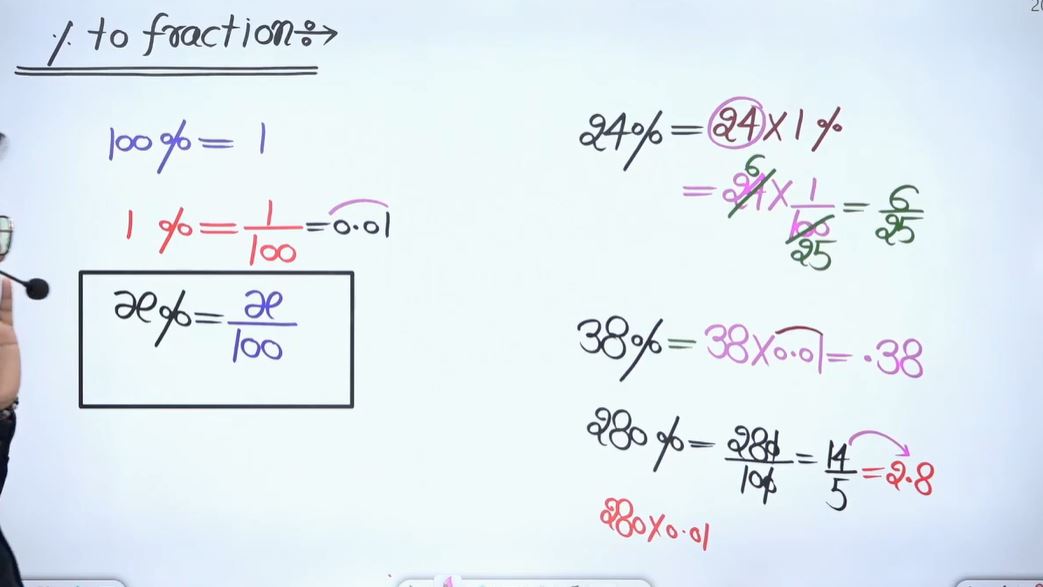 % to fraction÷→
100% = 1
1 % = 1/100 = 0.01
x% = x/100
24% = 24 × 1 %
= 24 × 1/100 = 6/25
6
25
38% = 38 × 0.01 = .38
280 % = 280/100 = 14/5 = 2.8
280 × 0.01